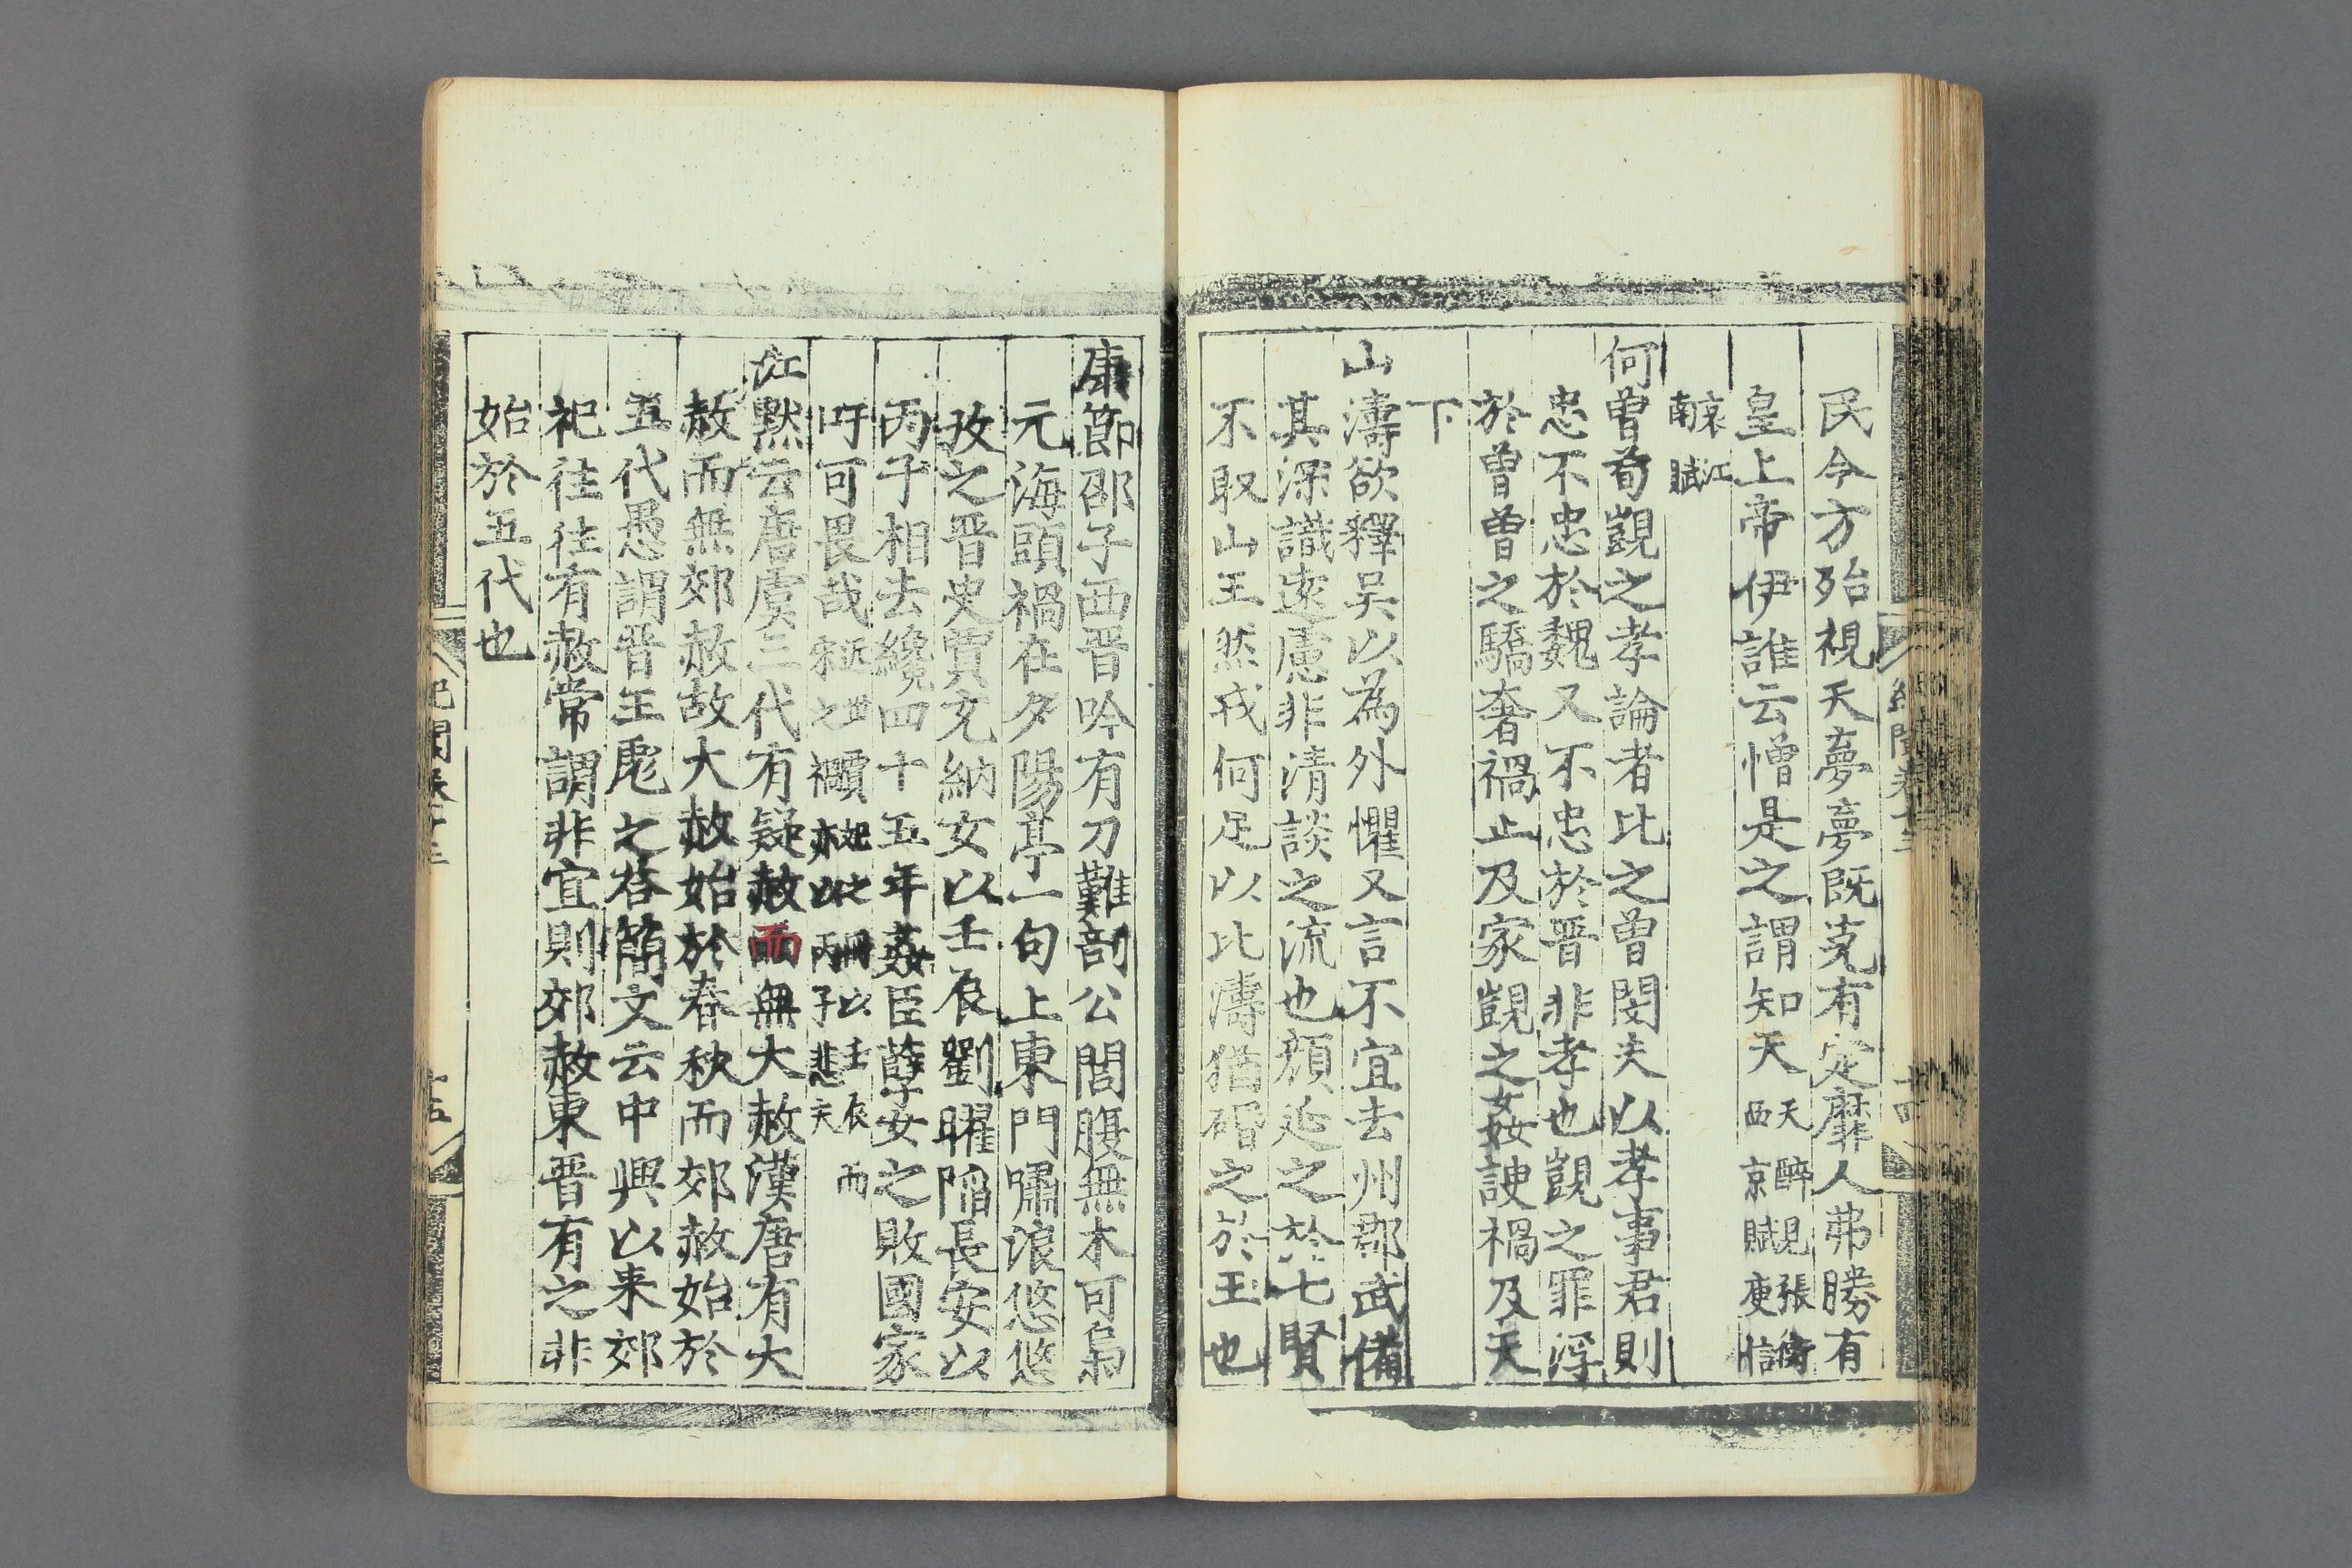 民今方殆視天夢夢既克有定靡人弗勝有
皇上帝伊誰云憎是之謂知天天醉見張衡西京賦庾信
哀江南賦
何曾荀覬之孝論者比之曾閔夫以孝事君則
忠不忠於魏又不忠於晋非孝也覬之罪浮
於曾曾之驕奢禍止及家覬之姦諛禍及天
下
山濤欲釋吴以為外懼又言不宜去州郡武備
其深識逺慮非清談之流也顔延之於七賢
不取山王然戎何足以比濤猶碈之於玉也
康節邵子西晋吟有刀難剖公閭腹無木可梟
元海頭禍在夕陽亭一句上東門嘯浪悠悠
攷之晋史賈充納女以壬辰劉曜陷長安以
丙子相去纔四十五年姦臣孽女之敗國家
吁可畏哉衰世之禩妲之冊以壬辰而
江默云唐虞三代有疑赦而無大赦漢唐有大
赦而無郊赦故大赦始於春秋而郊赦始於
五代愚謂晋王彪之荅簡文云中興以来郊
祀往往有赦常謂非宜則郊赦東晋有之非
始於五代也
紀聞卷十三
十五